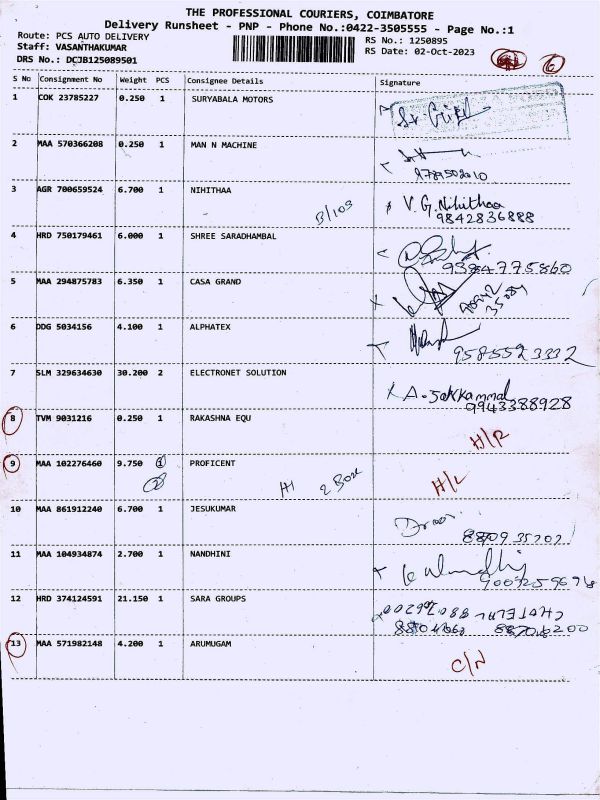 THE PROFESSIONAL COURIERS, COIMBATORE
Delivery Runsheet - PNP - Phone No.:0422-3505555 - Page No.:1
Route: PCS AUTO DELIVERY
RS No.: 1250895
Staff: VASANTHAKUMAR
RS Date: 02-Oct-2023
DRS No.: DCJB125089501
6
S No Consignment No Weight PCS Consignee Details Signature
1 COK 23785227 0.250 1 SURYABALA MOTORS
2 MAA 570366208 0.250 1 MAN N MACHINE
9789502010
3 AGR 700659524 6.700 1 NIHITHAA V.G.Nihithaa
B/103 9842836888
4 HRD 750179461 6.000 1 SHREE SARADHAMBAL
9384775860
5 MAA 294875783 6.350 1 CASA GRAND
6 DDG 5034156 4.100 1 ALPHATEX
9585523332
7 SLM 329634630 30.200 2 ELECTRONET SOLUTION
A.Jakkammal
9943388928
8 TVM 9031216 0.250 1 RAKASHNA EQU
H/R
9 MAA 102276460 9.750 1 PROFICENT
2 2 Box H/L
10 MAA 861912240 6.700 1 JESUKUMAR
11 MAA 104934874 2.700 1 NANDHINI
12 HRD 374124591 21.150 1 SARA GROUPS
13 MAA 571982148 4.200 1 ARUMUGAM
C/N